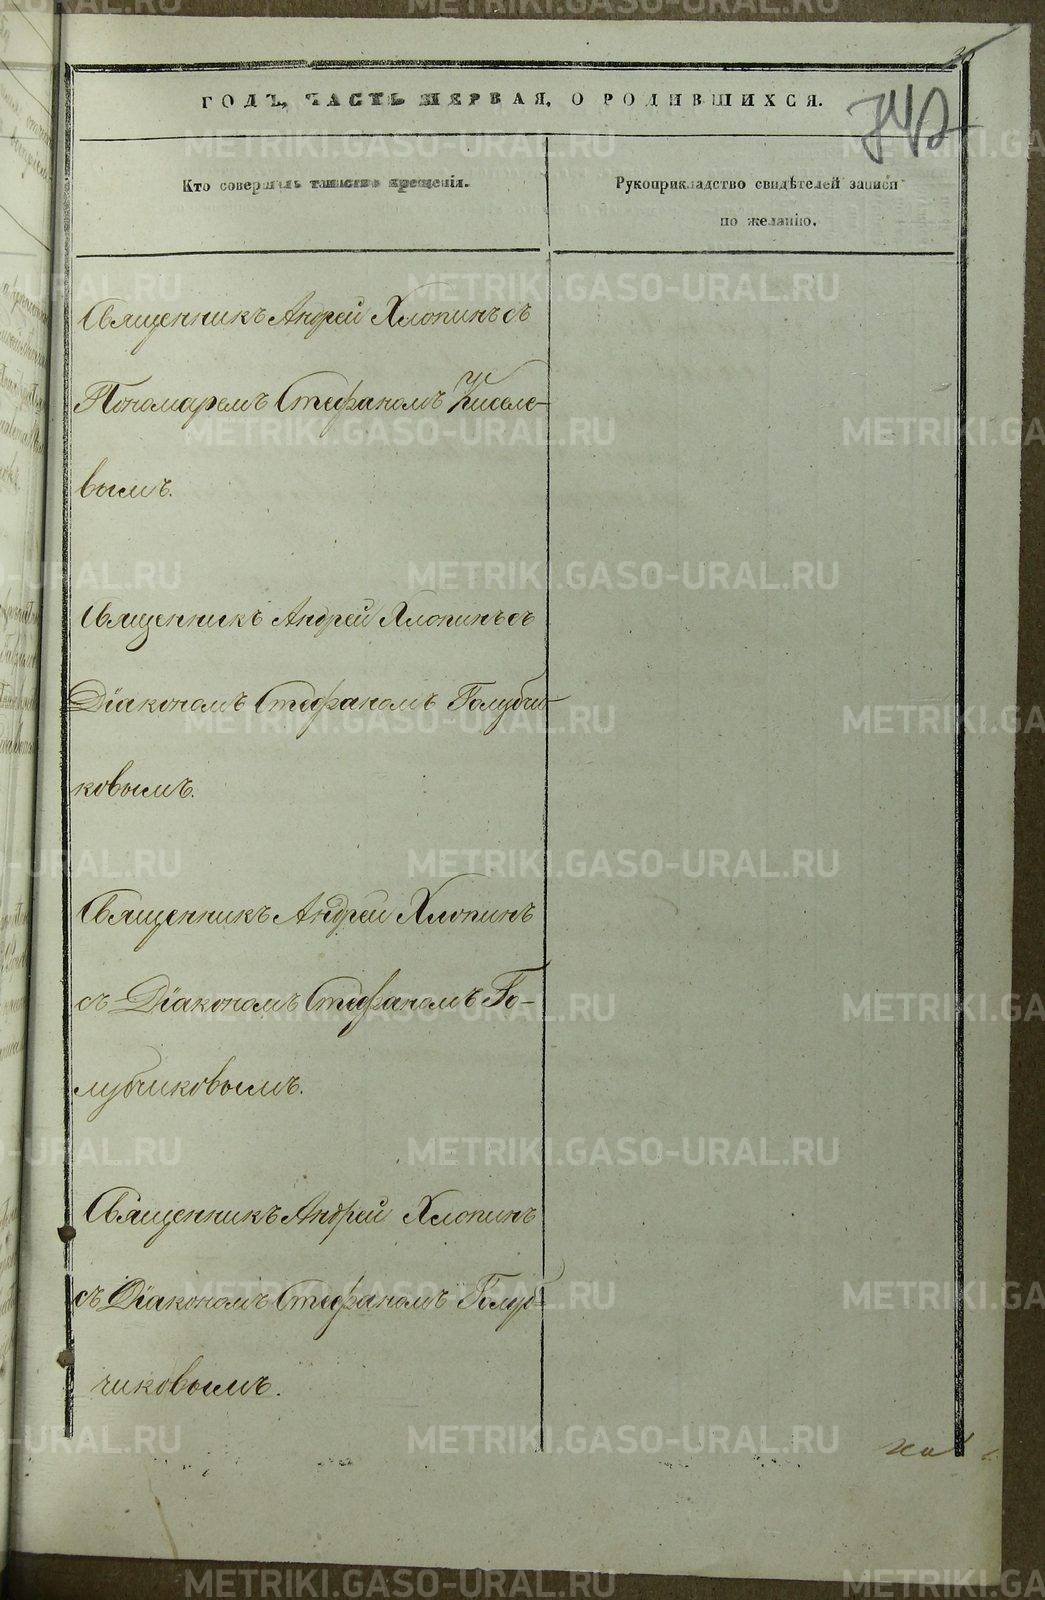 742
ГОДЪ, ЧАСТЬ ПЕРВАЯ, О РОДИВШИХСЯ.
Кто совершалъ таинство крещенія.
Рукоприкладство свидѣтелей записи
по желанію.
Священникъ Андрей Хлопинъ съ
Пономаремъ Стефаномъ Киселе-
вымъ.
Священникъ Андрей Хлопинъ съ
Діакономъ Стефаномъ Голубчи-
ковымъ.
Священникъ Андрей Хлопинъ
съ Діакономъ Стефаномъ Го-
лубчиковымъ.
Священникъ Андрей Хлопинъ
съ Діакономъ Стефаномъ Голуб-
чиковымъ.
METRIKI.GASO-URAL.RU